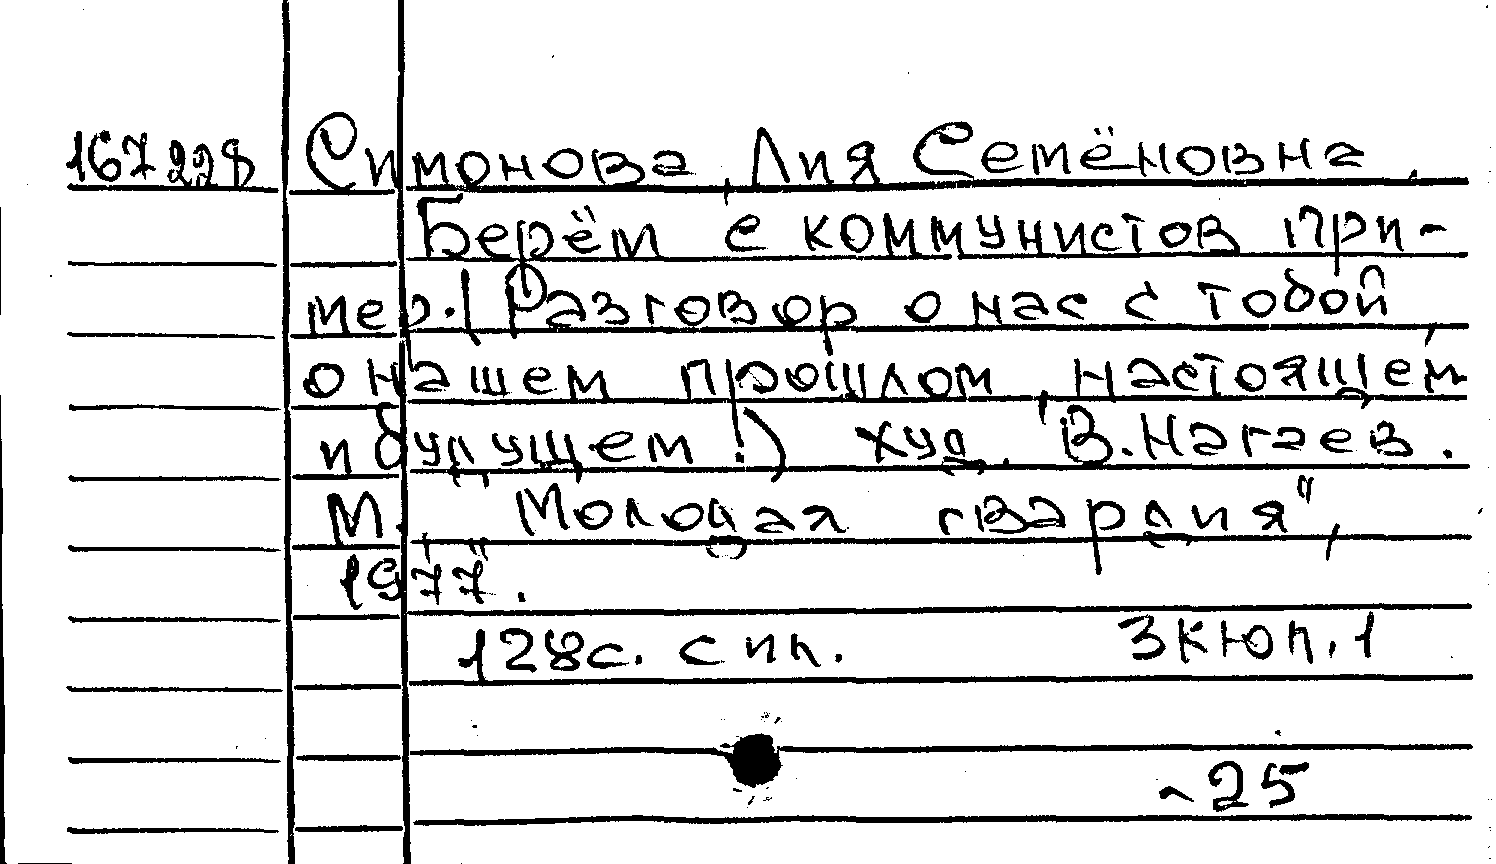 167228 Симонова, Лия Семёновна.
Берём с коммунистов при-
мер. (Разговор о нас с тобой,
о нашем прошлом, настоящем
и будущем!) худ. В. Нагаев.
М., "Молодая гвардия",
1977.
128с. с ил. 3КЮП.1
-25